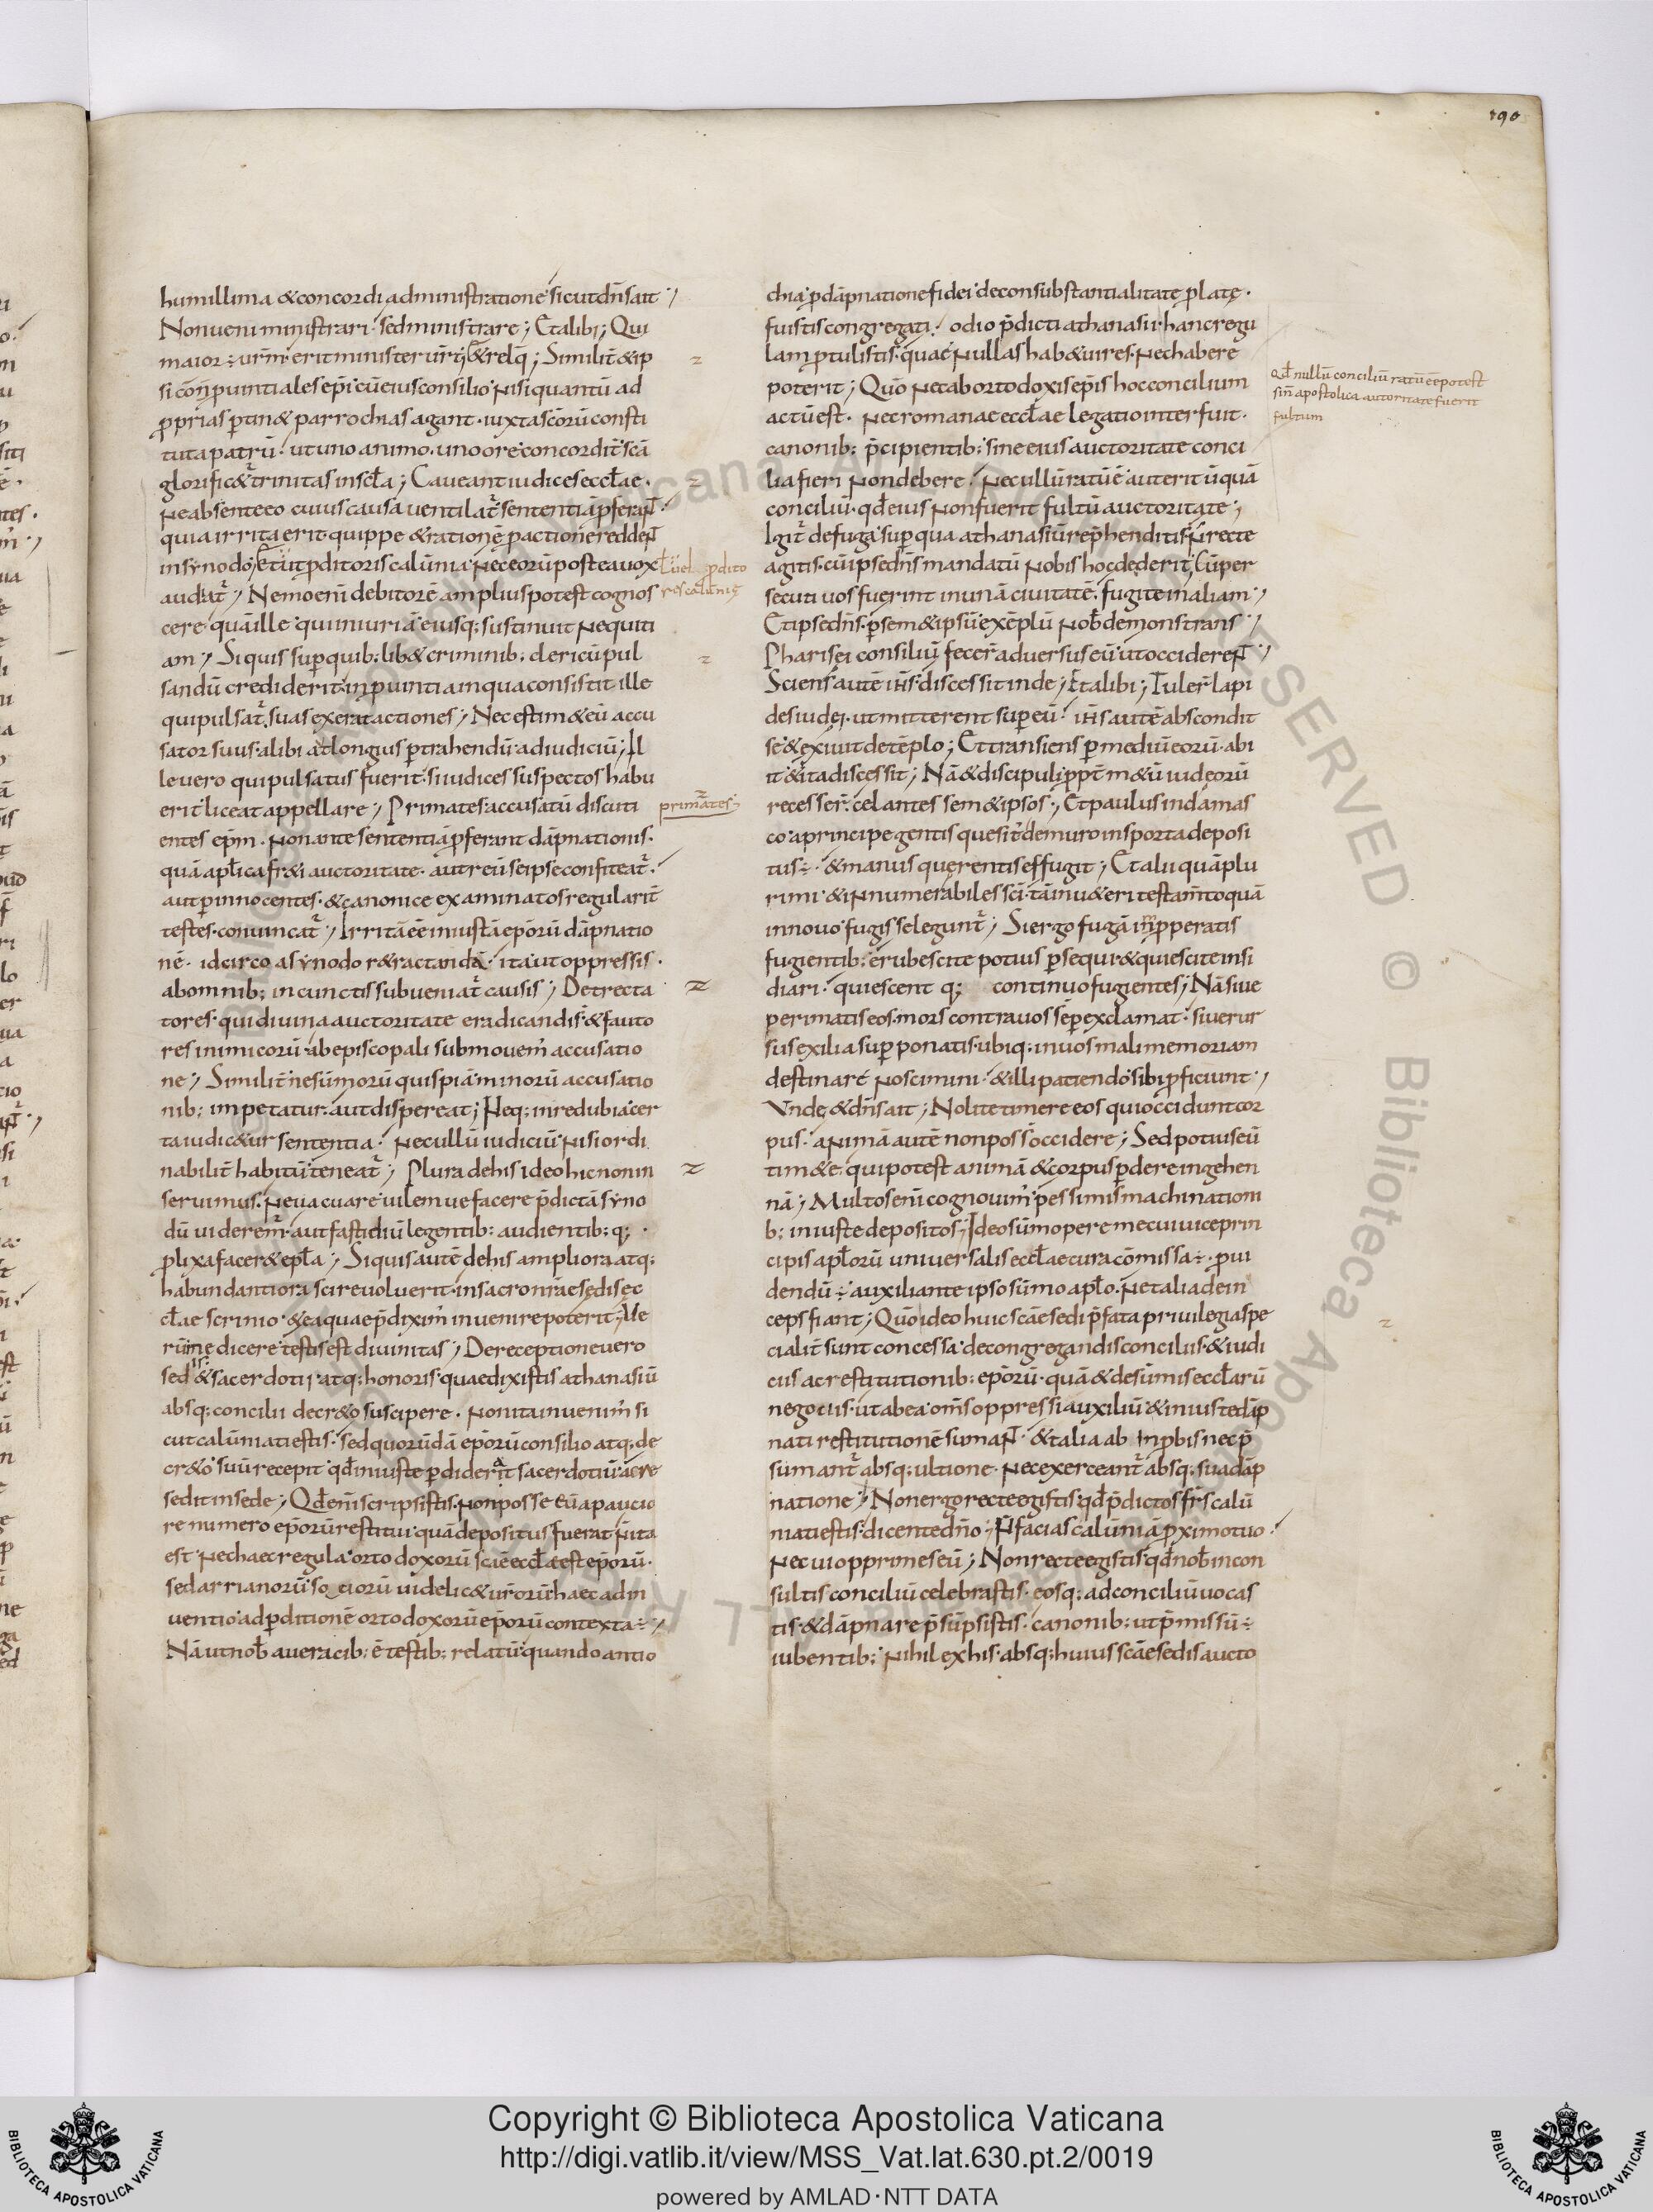 190
humillima & concordi administratione sicut dn̄s ait;
Non ueni ministrari sed ministrare; Et alibi; Qui
maior ÷ ur̄m erit minister ur̄i; & relq̄; Similit̄ & ip
si con̄prouintiales ep̄i cū eius consilio nisi quantū ad
proprias ptin& parrochias agant iuxta sc̄orū consti
tuta patrū ut uno animo uno ore concordit̄ sc̄a
glorific&ur trinitas in scl̄a; Caueant iudices eccl̄ae.
Ne absente eo cuius causa uentilat̄ sententiā pferaNT
quia irrita erit quippe & rationē p actione reddeNT
in synodo; Et ut pditoris calūnia nec eorū postea uox
audiat̄; Nemo enī debitorē amplius potest cognos
cere quā ille qui iniuriā eiusq; sustinuit nequiti
am; Siquis sup quib; lib& criminib; clericū pul
sandū crediderit in puintia in qua consistit ille
qui pulsat̄ suas exerat actiones; Nec estim& eū accu
sator suus alibi at longius ptrahendū ad iudiciū; Il
le uero qui pulsatus fuerit si iudices suspectos habu
erit liceat appellare; Primates accusatū discuti
entes ep̄m. Non ante sententiā pferant dāpnationis
quā apl̄ica fr&i auctoritate aut reū se ipse confiteat̄
aut p innocentes & canonice examinatos regularit̄
testes conuincat̄; Irritā eē iniustā ep̄orū dāpnatio
nē idcirco a synodo r&ractandā ita ut oppressis
ab omnib; in cunctis subueniat̄ causis; Detrecta
tores qui diuina auctoritate eradicandi s̄ & fauto
res inimicorū ab episcopali submouem̄ accusatio
ne; Similit̄ ne sūmorū quispiā minorū accusatio
nib; impetatur aut dispereat; Neq; in re dubia cer
ta iudic&ur sententia. Nec ullū iudiciū nisi ordi
nabilit̄ habitū teneat̄; Plura de his ideo hic non in
seruimus. Ne uacuare uilem ue facere p̄dictā syno
dū uiderem̄ aut fastidiū legentib; audientib; q;
plixa facer& epl̄a; Siquis autē de his ampliora atq;
habundantiora scire uoluerit in sacro nr̄ae sedis ec
cl̄ae scrinio & ea quae p̄dixim̄ inuenire poterit; Ve
rū me dicere testis est diuinitas; De receptione uero
sed & sacerdotii atq; honoris quae dixistis athanasiū
absq; concilii decr&o suscipere. Non ita inuenim̄ si
cut calūniati estis sed quorūdā ep̄orū consilio atq; de
cr&o suū recepit qd̄ iniuste pdiderat sacerdotiū ac re
sedit in sede; Qd̄ enī scripsistis non posse eū a paucio
re numero ep̄orū restitui quā depositus fuerat n̄ ita
est nec haec regula ortodoxorū sc̄ae eccl̄ae est ep̄orū
sed arrianorū sociorū uidelic& ur̄orū haec adin
uentio ad pditionē ortodoxorū ep̄orū contexta ÷;
Nā ut nob̄ a ueracib; ē testib; relatū quando antio
ł uel pdito
res calūnię
primates
chia p dāpnatione fidei de consubstantialitate plate
fuistis congregati odio p̄dicti athanasii hanc regu
lam ptulistis quae nullas hab& uires. Nec habere
poterit; Quō nec ab ortodoxis ep̄is hoc concilium
actū est. Nec romanae eccl̄ae legatio interfuit.
canonib; p̄cipientib; sine eius auctoritate conci
lia fieri non debere. Nec ullū ratū ē aut erit ūquā
conciliū qd̄ eius non fuerit fultū auctoritate;
Igit̄ de fuga sup qua athanasiū rep̄henditis n̄ recte
agitis cū ipse dn̄s mandatū nobis hoc dederit; Cū per
secuti uos fuerint in unā ciuitatē fugite in aliam;
Et ipse dn̄s p sem&ipsū exēplū nob̄ demonstrans;
Pharisei consiliū fecer̄ aduersus eū ut occidereNT;
Sciens autē ih̄s discessit inde; Et alibi; Tuler̄ lapi
des iudei ut mitterent super eū. ih̄s autē abscondit
se & exiuit de tēplo; Et transiens p mediū eorū abi
it & ita discessit; Nā & discipuli ppt̄ m&ū iudeorū
recesser̄ celantes sem&ipsos; Et paulus in damas
co a principe gentis quesit̄ de muro in sporta deposi
tus ÷ & manus querentis effugit; Et alii quā plu
rimi & innumerabiles sc̄i tā in u&eri testam̄to quā
in nouo fugisse legunt̄; Si ergo fugā impperatis
fugientib; erubescite potius psequi & quiescite insi
diari quiescent q; continuo fugientes; Nā siue
perimatis eos mors contra uos sēp exclamat siue rur
sus exilia sup ponatis ubiq; in uos mali memoriam
destinare noscimini & illi patiendo sibi pficiunt;
Vnde & dn̄s ait; Nolite timere eos qui occidunt cor
pus animā autē non poss̄ occidere; Sed potius eū
tim&e qui potest animā & corpus pdere in gehen
nā; Multos enī cognouim̄ pessimis machinationi
b; iniuste depositos; Ideo sūmopere me cui uice prin
cipis apl̄orū uniuersalis eccl̄ae cura cōmissa ÷ proui
dendū ÷ auxiliante ipso sūmo apl̄o. Ne talia dein
ceps fiant; Quō ideo huic sc̄ae sedi p̄fata priuilegia spe
cialit̄ sunt concessa de congregandis conciliis & iudi
ciis ac restitutionib; ep̄orū quā & de sūmis eccl̄arū
negociis ut ab ea om̄s oppressi auxiliū & iniuste dāp
nati restitutionē sumaNT & talia ab inprobis nec p̄
sumant̄ absq; ultione. Nec exerceant̄ absq; sua dāp
natione; Non ergo recte egistis qd̄ p̄dictos fr̄s calū
niati estis dicente dn̄o; N̄ facias calūniā proximo tuo
Nec ui opprimes eū; Non recte egistis qd̄ nob̄ incon
sultis conciliū celebrastis eosq; ad conciliū uocas
tis & dāpnare p̄sūpsistis canonib; ut p̄missū ÷
iubentib; nihil ex his absq; huius sc̄ae sedis aucto
Qd̄ nullū conciliū ratū eē potest
sin̄ apostolica autoritate fuerit
fultum
Copyright © Biblioteca Apostolica Vaticana
http://digi.vatlib.it/view/MSS_Vat.lat.630.pt.2/0019
powered by AMLAD·NTT DATA
BIBLIOTECA APOSTOLICA VATICANA
BIBLIOTECA APOSTOLICA VATICANA